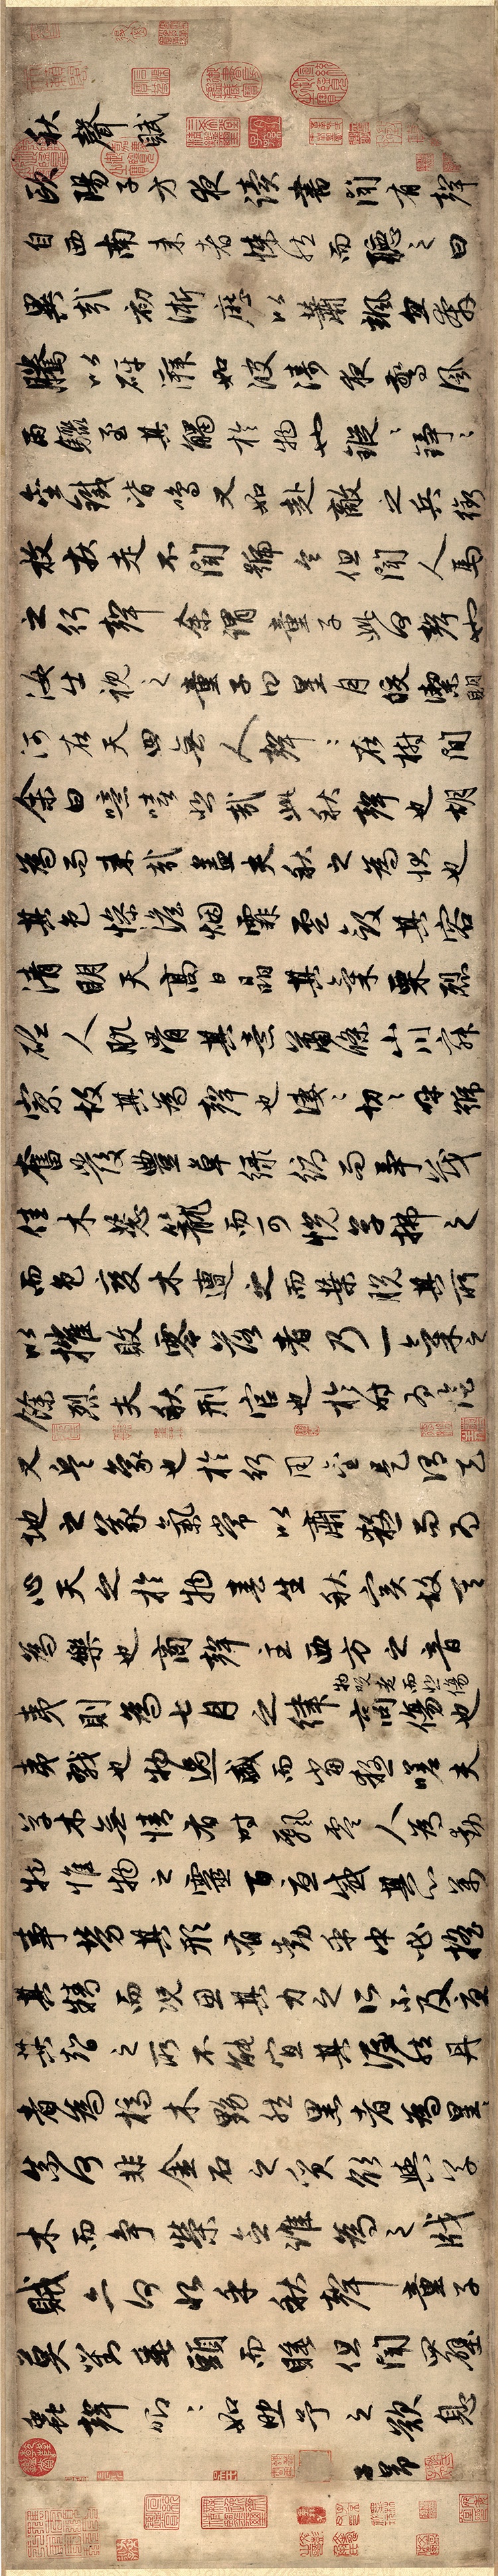 秋聲賦
歐陽子方夜讀書聞有聲
自西南来者悚然而聽之曰
異哉初淅瀝以蕭颯忽奔
騰以砰湃如波濤夜驚風
雨驟至其觸於物也鏦〻錚〻
金鐵皆鳴又如赴敵之兵銜
枚疾走不聞號令但聞人馬
之行聲余謂童子此何聲也
汝出視之童子曰星月皎潔明
河在天四無人聲〻在樹間
余曰噫嘻悲哉此秋聲也胡
為而来哉蓋夫秋之為状也
其色慘澹烟霏雲斂其容
清明天高日晶其氣栗烈
砭人肌骨其意蕭條山川寂
寥故其為聲也凄〻切〻呼號
奮發豐草緑縟而争茂
佳木葱籠而可悅草拂之
而色變木遭之而葉脱其所
以摧敗零落者乃一氣之
餘烈夫秋刑官也於時為陰
又兵象也於行用金是謂天
地之義氣常以肅殺而為
心天之於物春生秋實故其
為樂也商聲主西方之音
夷則為七月之律商傷也
物既老而悲傷
夷戮也物過盛而當殺嗟夫
草木無情有時飄零人為動
物惟物之靈百憂感其心萬
事勞其形有動乎中必搖
其精而況思其力之所不及憂
其智之所不能宜其渥然丹
者為槁木黟然黑者為星〻
奈何非金石之質欲與草
木而争榮念誰為之戕
賊亦何恨乎秋聲童子
莫對垂頭而睡但聞四壁
蟲聲唧〻如助予之歎息
子昂